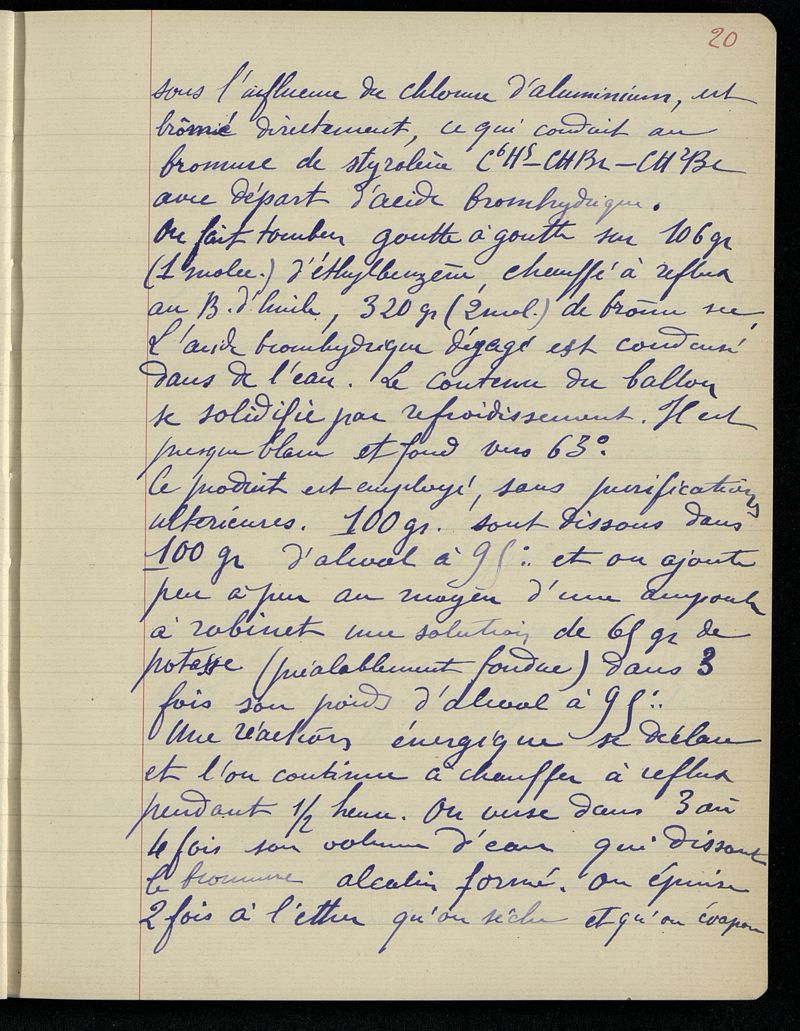 20
sous l'influence du chlorure d'aluminium, est
brômé directement, ce qui conduit au
bromure de styrolène C⁶H⁵-CHBr-CH²Br
avec départ d'acide bromhydrique.
On fait tomber goutte à goutte sur 106 gr
(1 molec.) d'éthylbenzène, chauffé à reflux
au B. d'huile, 320 gr (2 mol.) de brôme sec,
L'acide bromhydrique dégagé est condensé
dans de l'eau. Le contenu du ballon
se solidifie par refroidissement. Il est
presque blanc et fond vers 63°.
Ce produit est employé, sans purifications
ultérieures. 100 gr. sont dissous dans
100 gr d'alcool à 95°. et on ajoute
peu à peu au moyen d'une ampoule
à robinet une solution de 65 gr de
potasse (préalablement fondue) dans 3
fois son poids d'alcool à 95°.
Une réaction énergique se déclare
et l'on continue à chauffer à reflux
pendant 1/2 heure. On verse dans 3 ou
4 fois son volume d'eau qui dissout
le bromure alcalin formé. On épuise
2 fois à l'éther qu'on sèche et qu'on évapore